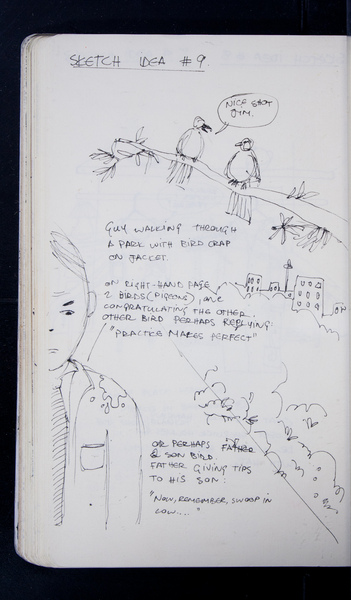 SKETCH IDEA #9.
NICE SHOT
JYM.
GUY WALKING THROUGH
A PARK WITH BIRD CRAP
ON JACKET.
ON RIGHT-HAND PAGE
2 BIRDS (PIGEONS), one
CONGRATULATING THE OTHER.
OTHER BIRD PERHAPS REPLYING:
"PRACTICE MAKES PERFECT"
OR PERHAPS FATHER
& SON BIRD
FATHER GIVING TIPS
TO HIS SON:
"NOW, REMEMBER, SWOOP IN
LOW...."